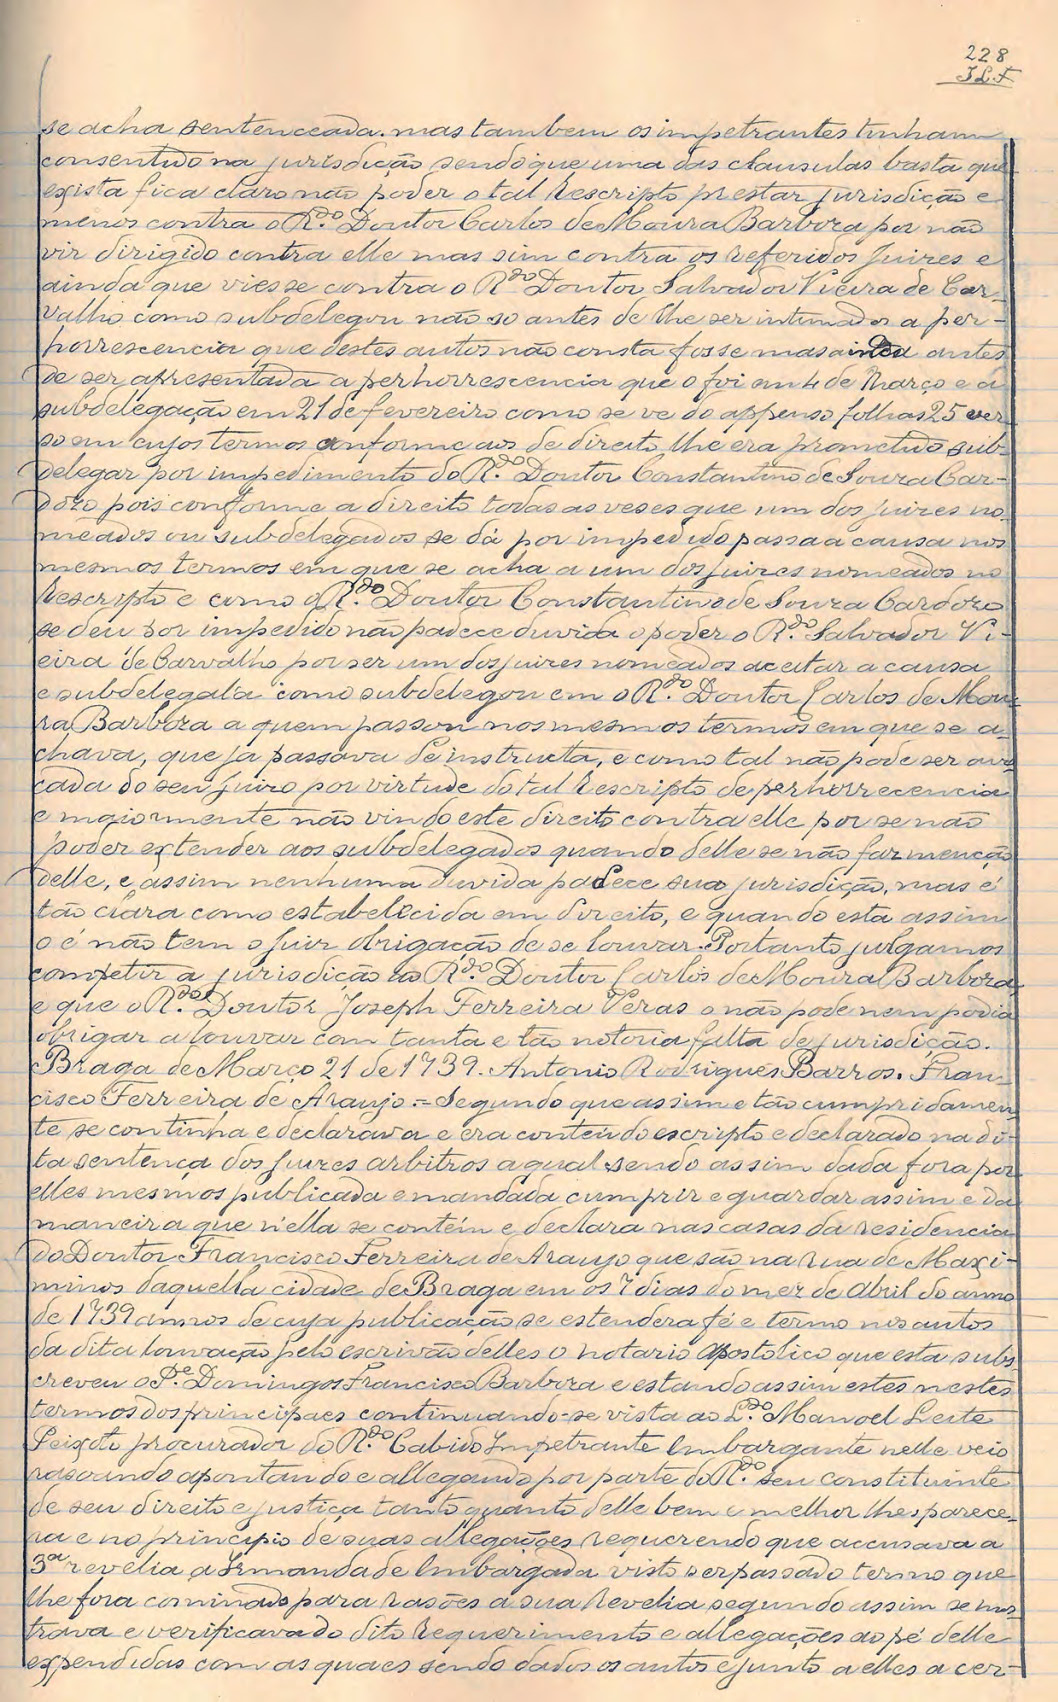 228
J.L.F.
se acha sentenceada. mas tambem os impetrantes tinham
consentido na jurisdicção sendo que uma das clausulas basta que
exista fica claro não poder o tal Rescripto prestar jurisdicção e
menos contra o R.do Doutor Carlos de Moura Barboza por não
vir dirigido contra elle mas sim contra os referidos juizes e
ainda que viesse contra o R.do Doutor Salvador Vieira de Car-
valho como subdelegou não so antes de lhe ser intimados a per-
horrescencia que destes autos não consta fosse mas ainda antes
de ser apresentada a perhorrescencia que o foi em 4 de Março e a
subdelegação em 21 de fevereiro como se ve do appenso folhas 25 ver
so em cujos termos conforme aos de direito lhe era prometido sub-
delegar por impedimento do R.do Doutor Constantino de Souza Car-
dozo pois conforme a direito todas as veses que um dos juizes no-
meados ou subdelegados se dá por impedido passa a causa nos
mesmos termos em que se acha a um dos juizes nomeados no
Rescripto e como o R.do Doutor Constantino de Souza Cardozo
se deu por impedido não padece duvida o poder o R.do Salvador Vi-
eira de Carvalho por ser um dos juizes nomeados aceitar a causa
e subdelegala como subdelegou em o R.do Doutor Carlos de Mou-
ra Barboza a quem passou nos mesmos termos em que se a-
chava, que ja passava de instructa, e como tal não pode ser avo-
cada do seu juizo por virtude do tal Rescripto de perhorrecencia
e maiormente não vindo este direito contra elle por se não
poder extender aos subdelegados quando delle se não faz menção
delle, e assim nenhuma duvida padece sua jurisdicção, mas é
tão clara como estabelecida em direito, e quando esta assim
o é não tem o juiz obrigação de se louvar. Portanto julgamos
competir a jurisdicção ao R.do Doutor Carlos de Moura Barboza
e que o R.do Doutor Joseph Ferreira Veras o não pode nem podia
obrigar a louvar com tanta e tão notoria falta de jurisdicção.
Braga de Março 21 de 1739. Antonio Rodrigues Barros. Fran-
cisco Ferreira de Araujo. = Segundo que assim e tão cumpridamen-
te se continha e declarava e era conteúdo escripto e declarado na di-
ta sentença dos juizes arbitros a qual sendo assim dada fora por
elles mesmos publicada e mandada cumprir e guardar assim e da
maneira que n'ella se contém e declara nas casas da residencia
do Doutor Francisco Ferreira de Araujo que são na Rua de Maxi-
minos daquella cidade de Braga em os 7 dias do mez de Abril do anno
de 1739 annos de cuja publicação se estendera fé e termo nos autos
da dita louvação pelo escrivão delles o notario Apostolico que esta subs-
creveu o P.e Domingos Francisco Barboza e estando assim estes nestes
termos dos principaes continuando-se vista ao L.do Manoel Leite
Peixoto procurador do R.do Cabido Impetrante Embargante nelle veio
rasoando apontando e allegando por parte do R.do seu constituinte
de seu direito e justiça tanto quanto delle bem e melhor lhes parece-
ra e no principio de suas allegações requerendo que accusava a
3.a revelia a Irmandade Embargada visto ser passado termo que
lhe fora cominado para rasões a sua Revelia segundo assim se mos-
trava e verificava do dito Requerimento e allegações ao pé delle
expendidas com as quaes sendo dados os autos e junto a elles a cer-